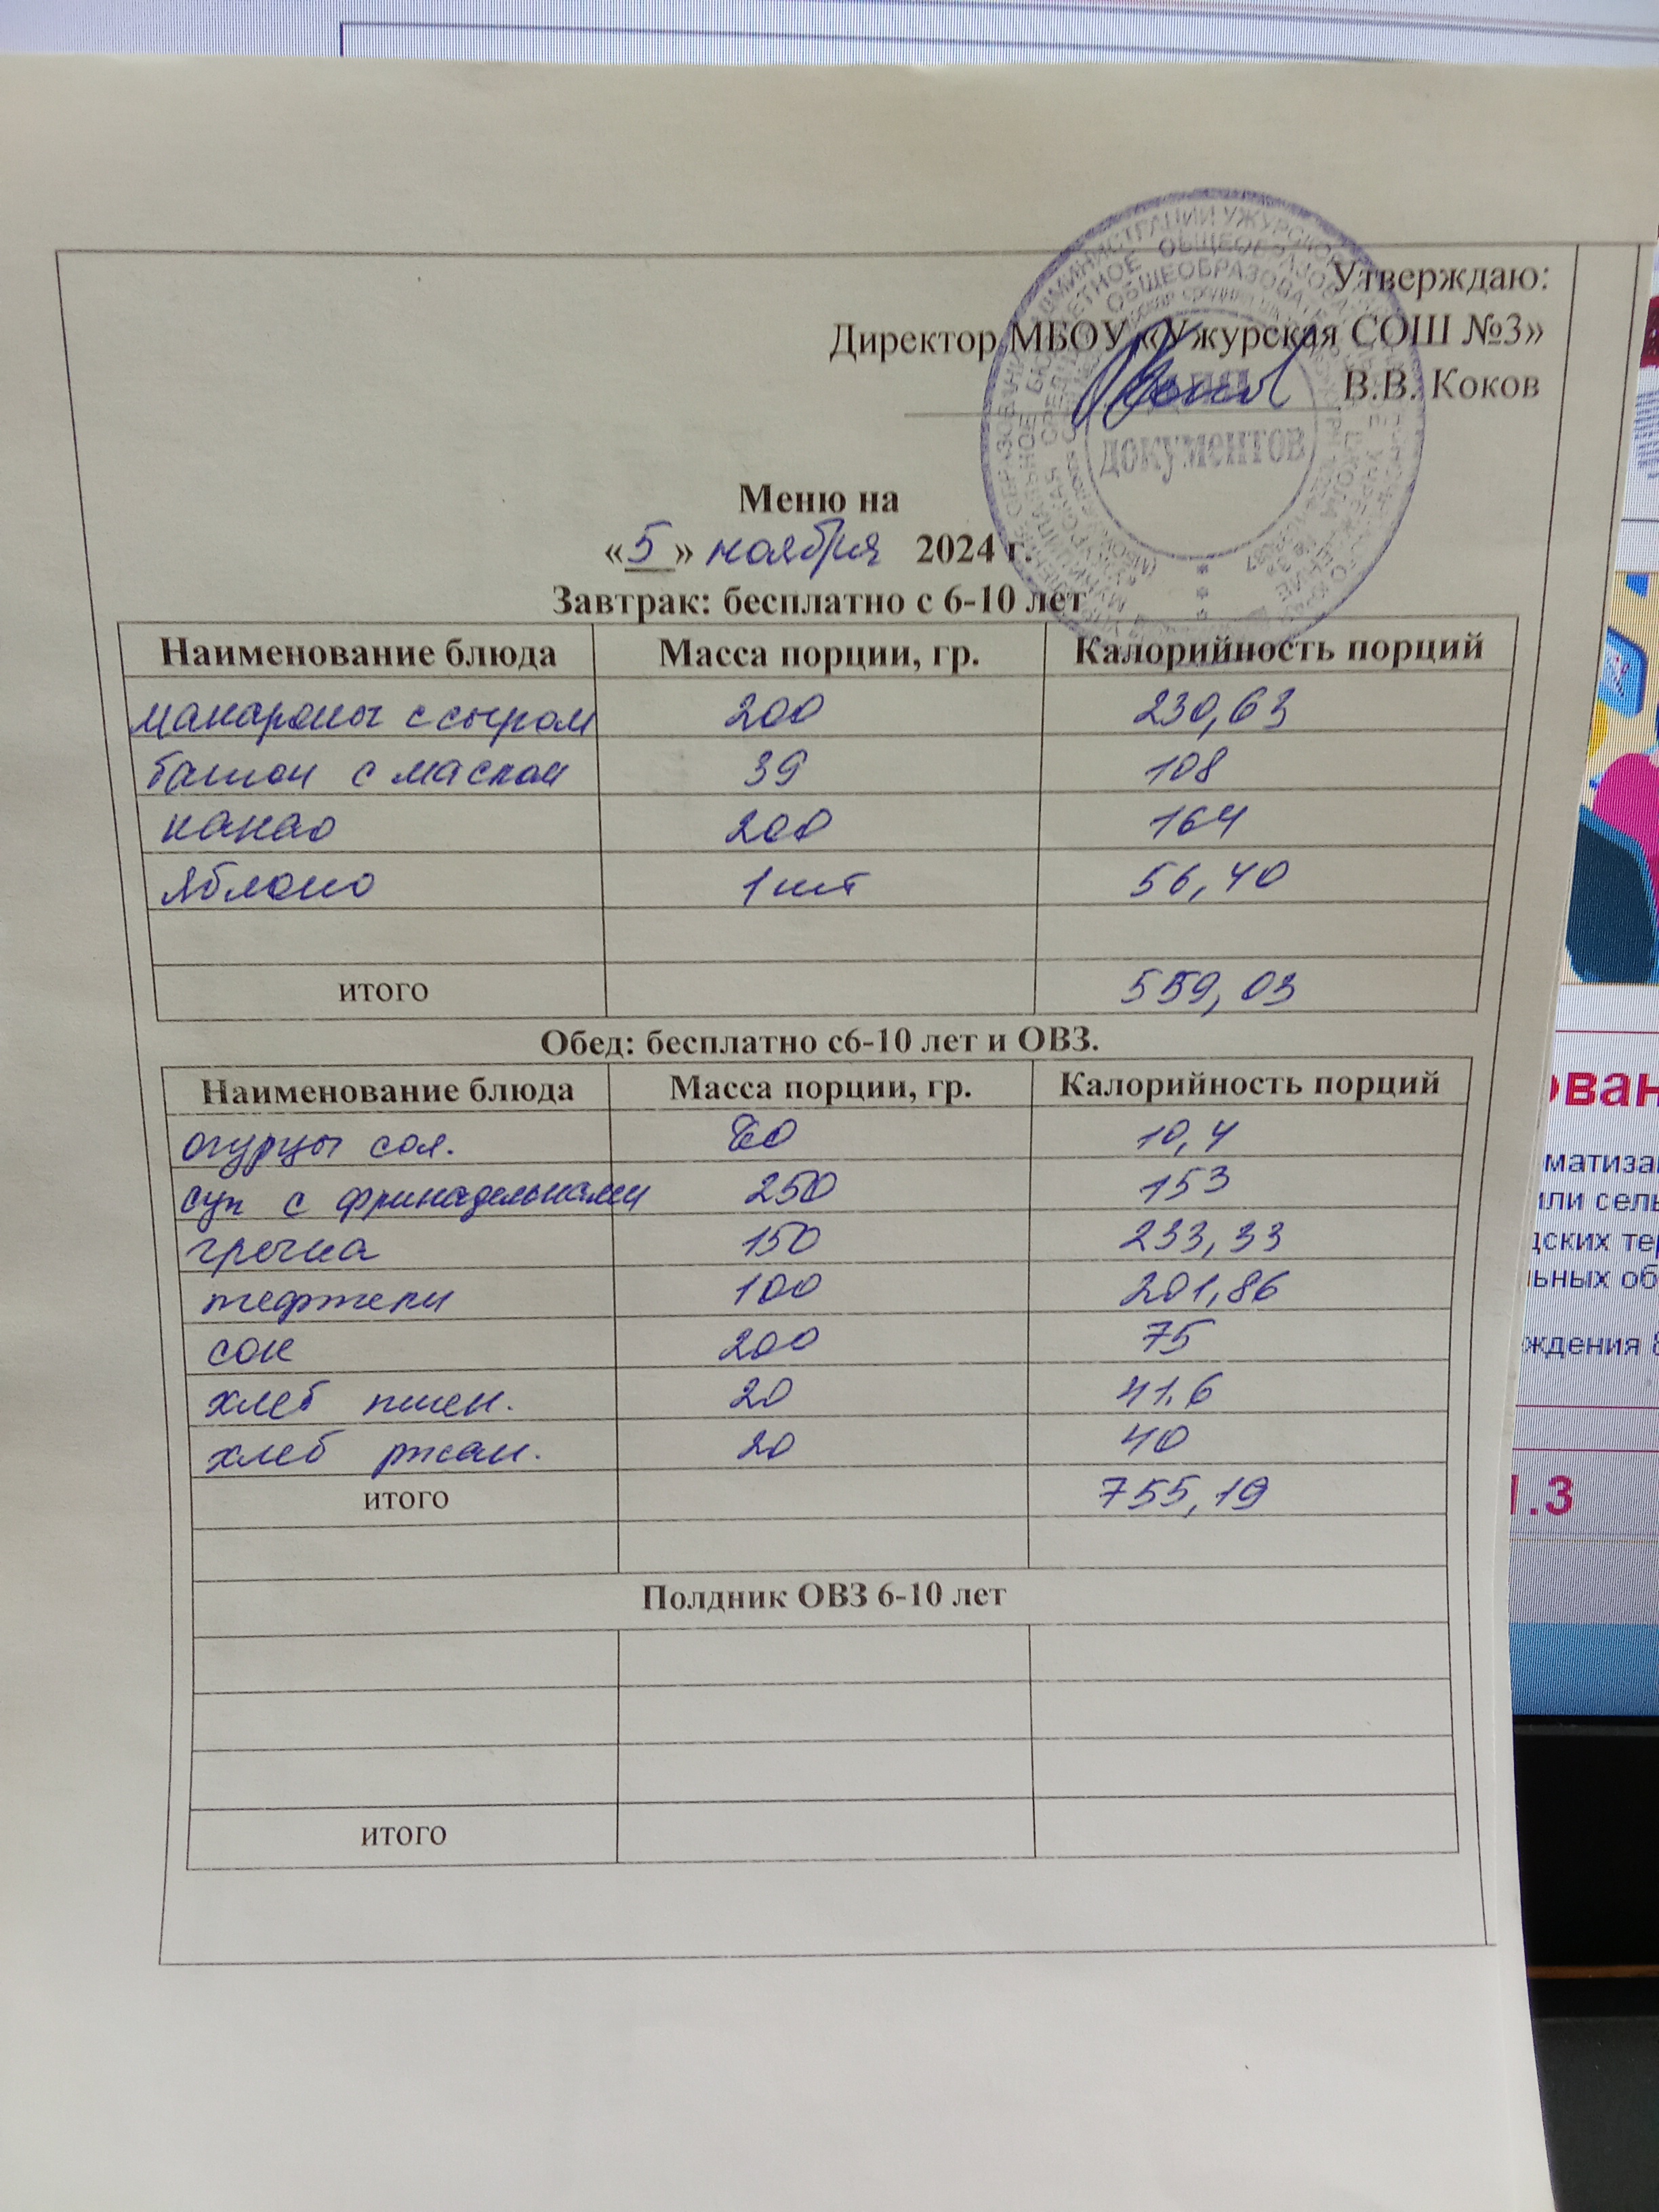 Утверждаю:
Директор МБОУ «Ужурская СОШ №3»
В.В. Коков
ДОКУМЕНТОВ
Меню на
«5» ноября 2024 г.
Завтрак: бесплатно с 6-10 лет
Наименование блюда Масса порции, гр. Калорийность порций
макароны с сыром 200 230,63
батон с маслом 39 108
какао 200 164
яблоко 1 шт 56,40
итого 559,03
Обед: бесплатно с6-10 лет и ОВЗ.
Наименование блюда Масса порции, гр. Калорийность порций
огурцы сол. 10,4
суп с фрикадельками 250 153
гречка 150 233,33
тефтели 100 201,86
сок 200 75
хлеб пшен. 20 41.6
хлеб ржан. 20 40
итого 755,19
Полдник ОВЗ 6-10 лет
итого
1.3